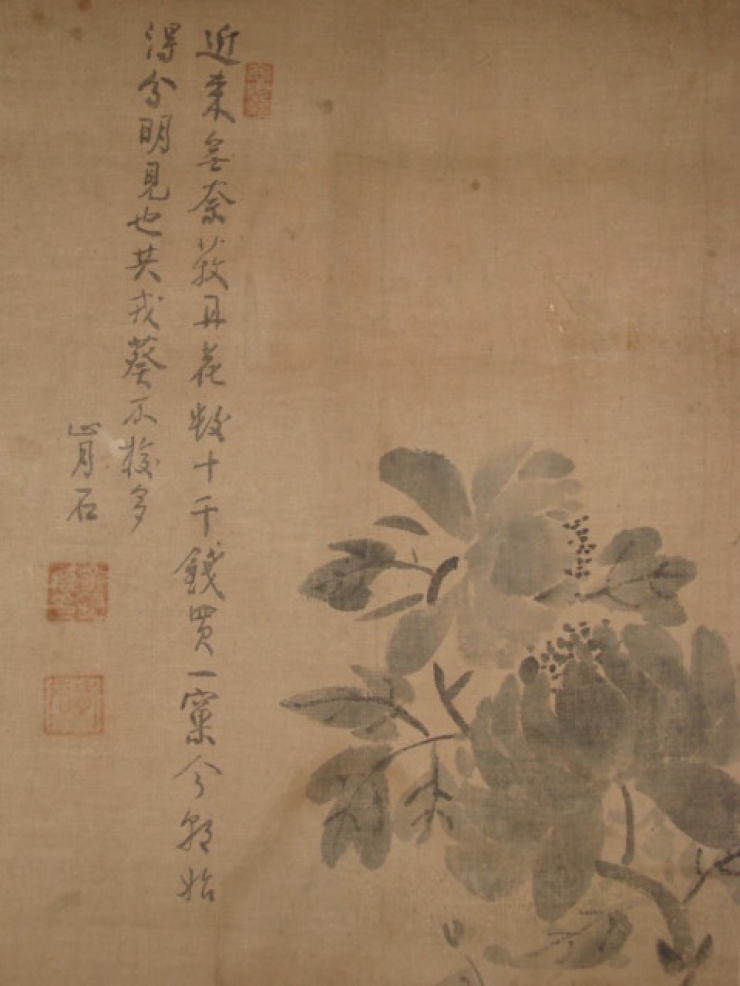 近来無奈牡丹花数十千錢買一窠今朝始
得分明見也共戎葵不挍多